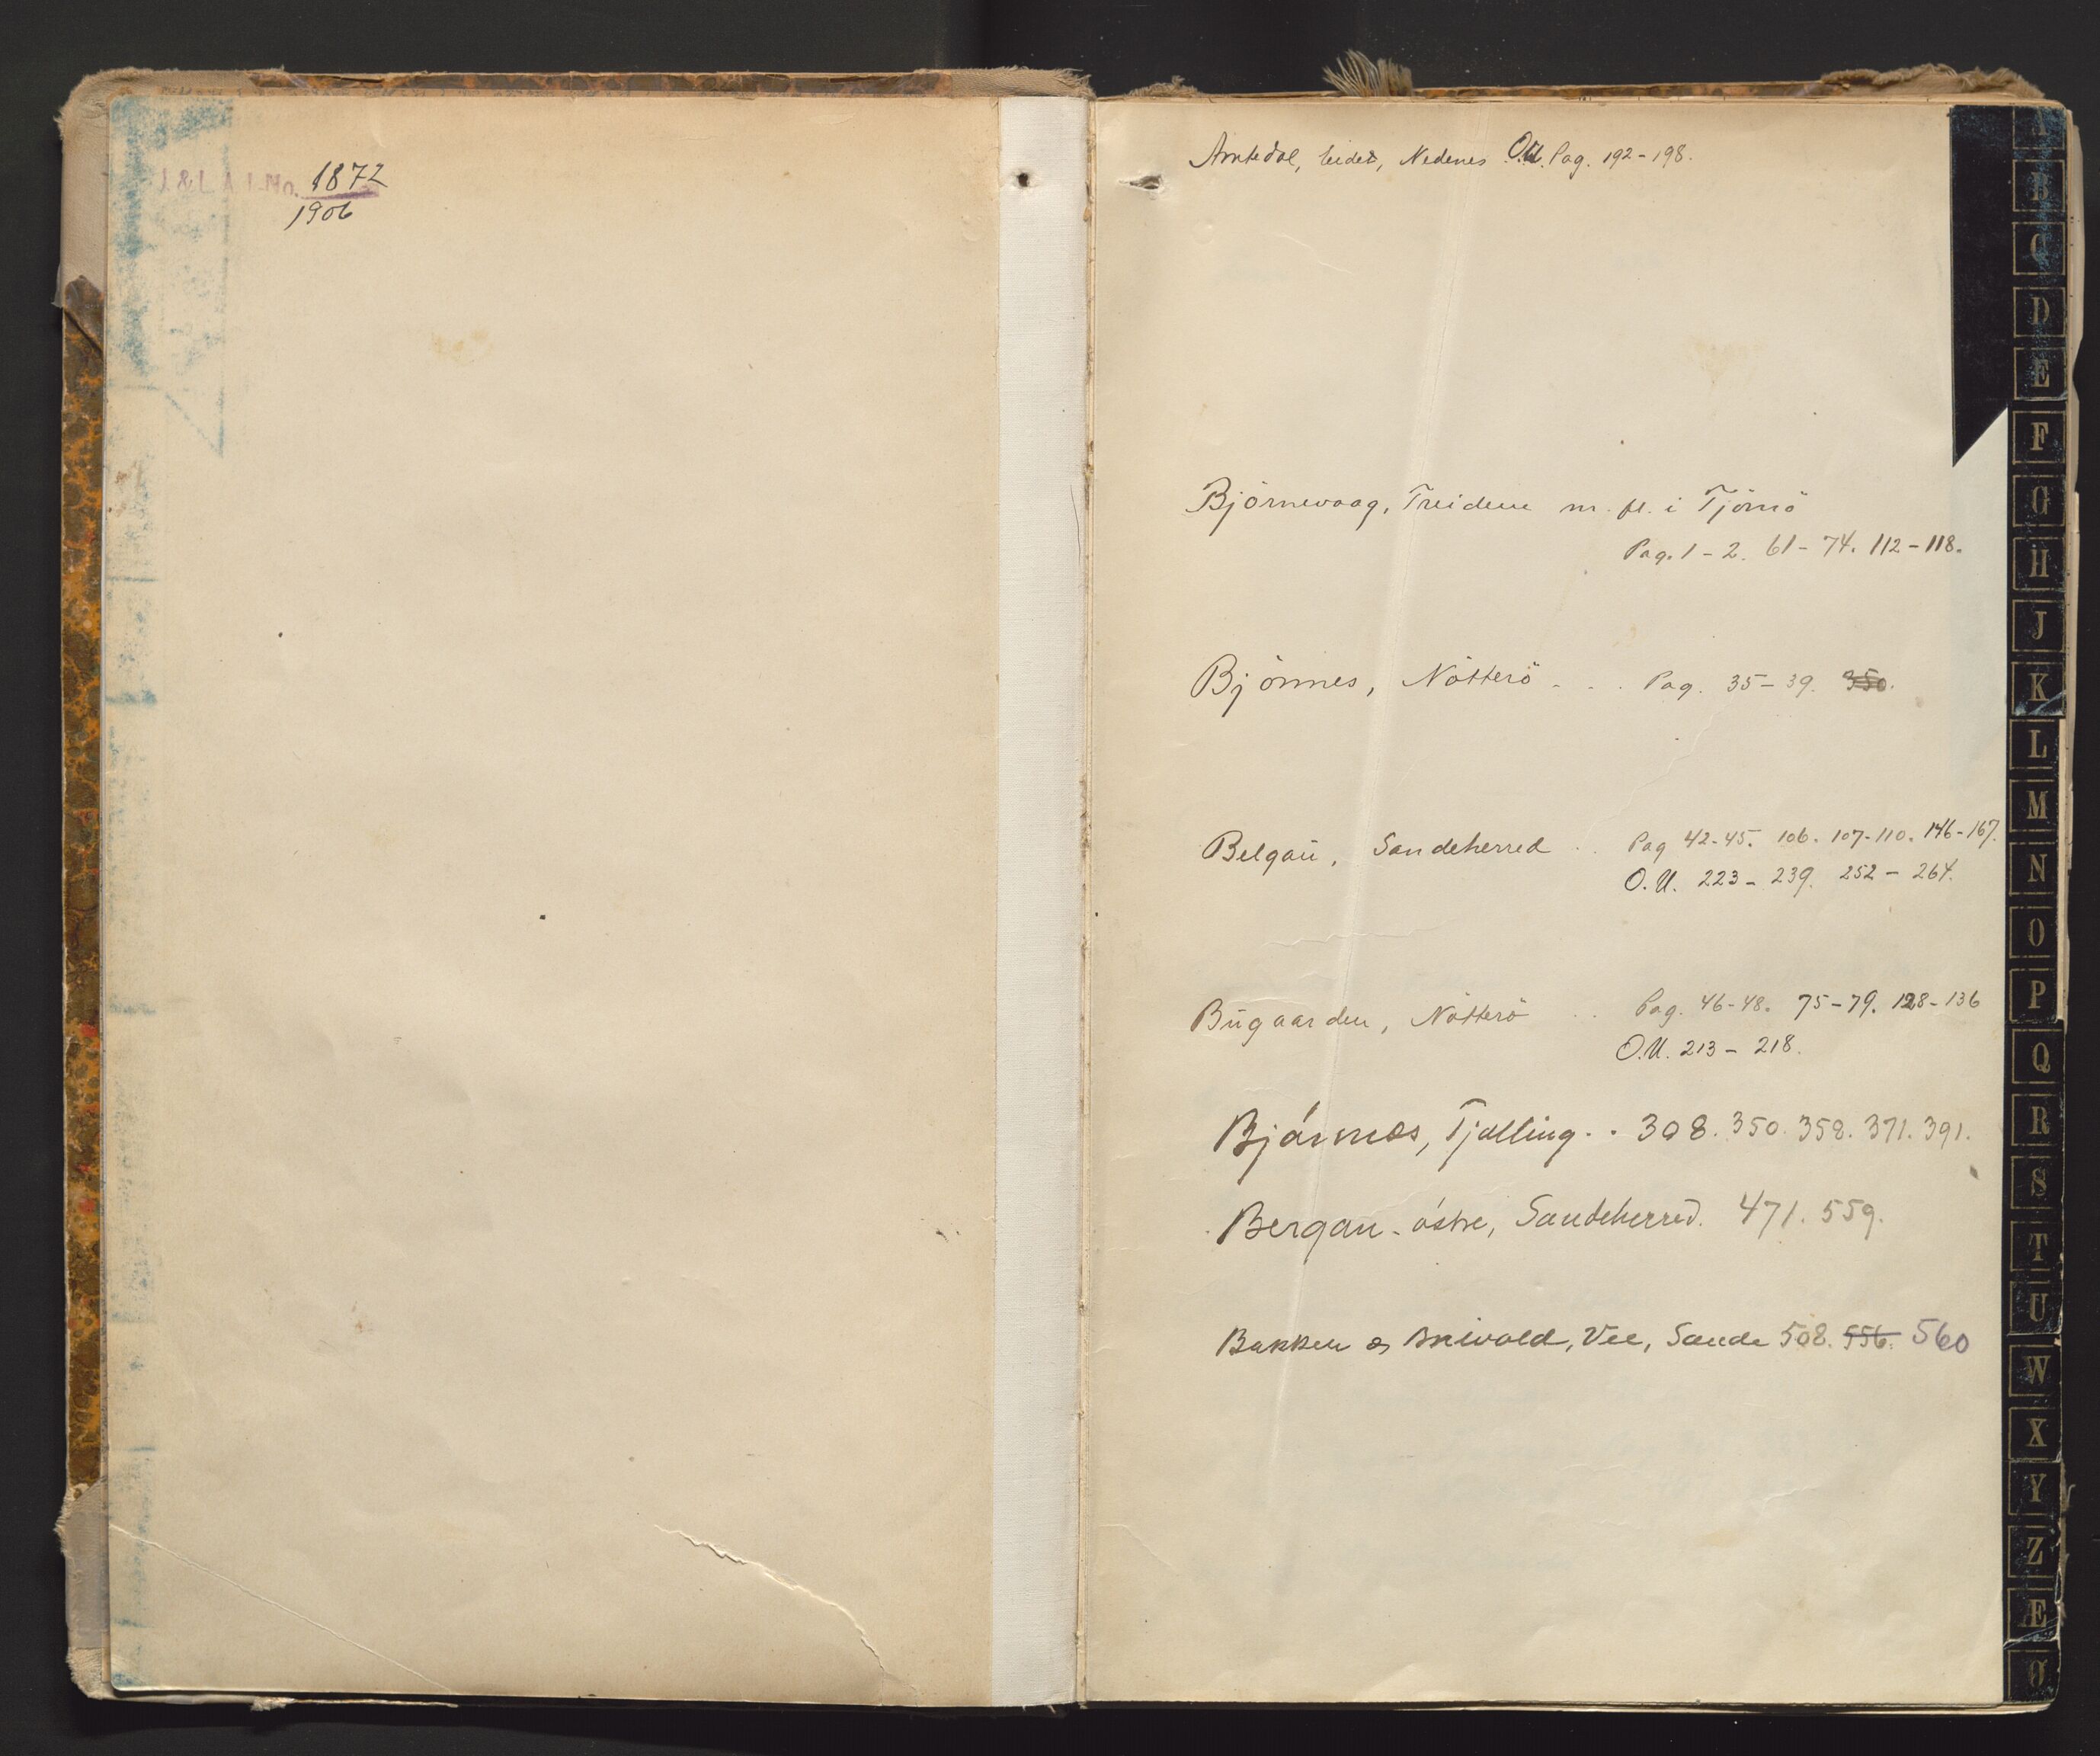 J. & L. A. J. No. 1872
1906
Amtedal, Eide, Nedenes O.U. Pag. 192-198.
Björnevaag, Treidene m. fl. i Tjömö
Pag. 1-2. 61-74. 112-118.
Björnnes, Nötterö . . . Pag. 35-39. 350.
Belgau, Sandeherred . . Pag 42-45. 106. 107-110. 146-167.
O.U. 223-239. 252-264.
Bugaarden, Nötterö . . Pag. 46-48. 75-79. 128-136
O.U. 213-218.
Bjónnæs, Tjølling . . 308. 350. 358. 371. 391.
Bergan - óstre, Sandeherred. 471. 559.
Bakken og Vee, Sande 508. 556. 560
A
B
C
D
E
F
G
H
J
K
L
M
N
O
P
Q
R
S
T
U
W
X
Y
Z
Æ
Ø